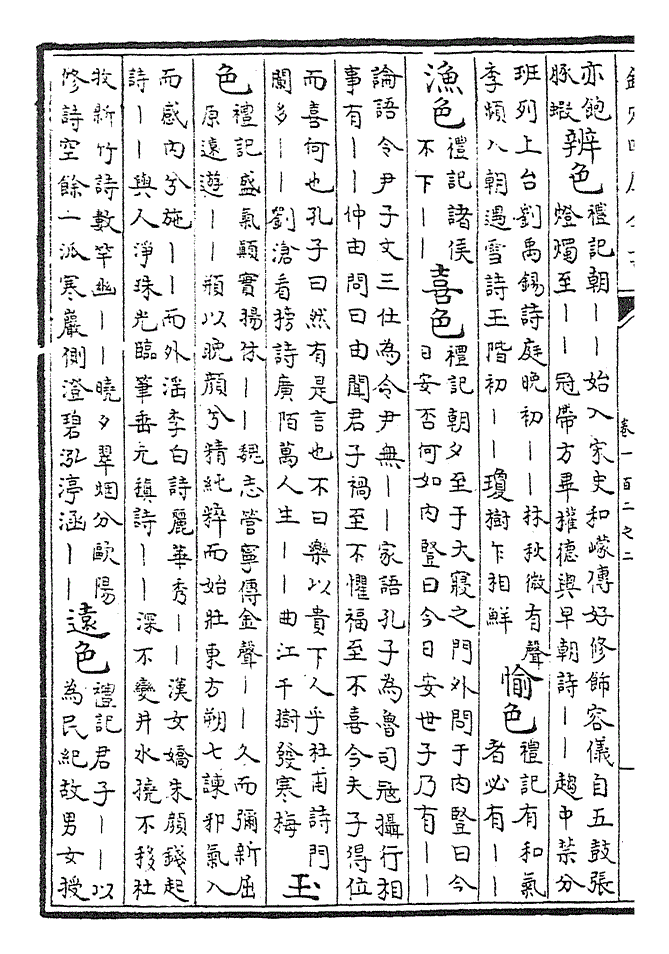 卷一百二之二
亦飽
豚蝦
辨色
禮記朝丨丨始入宋史和㠓傳好修飾容儀自五鼓張
燈燭至丨丨冠帶方畢權德輿早朝詩丨丨趨中禁分
班列上台劉禹錫詩庭晚初丨丨林秋微有聲
季頻八朝遇雪詩玉階初丨丨瓊樹乍相鮮
愉色
禮記有和氣
者必有丨丨
漁色
禮記諸侯
不下丨丨
喜色
禮記朝夕至于大寢之門外問于内豎曰今
日安否何如内豎曰今日安世子乃有丨丨
論語令尹子文三仕為令尹無丨丨家語孔子為魯司寇攝行相
事有丨丨仲由問曰由聞君子禍至不懼福至不喜今夫子得位
而喜何也孔子曰然有是言也不曰樂以貴下人乎杜甫詩門
闌多丨丨劉滄看榜詩廣陌萬人生丨丨曲江千樹發寒梅
玉
色
禮記盛氣顛實揚休丨丨魏志管寧傳金聲丨丨久而彌新屈
原遠遊丨丨頩以晚顔兮精純粹而始壯東方朔七諫邪氣入
而感内兮施丨丨而外滛李白詩麗華秀丨丨漢女嬌朱顔錢起
詩丨丨與人淨珠光臨筆垂元稹詩丨丨深不變井水撓不移杜
牧新竹詩數竿幽丨丨曉夕翠烟分歐陽
修詩空餘一派寒巖側澄碧泓渟涵丨丨
遠色
禮記君子丨丨以
為民紀故男女授